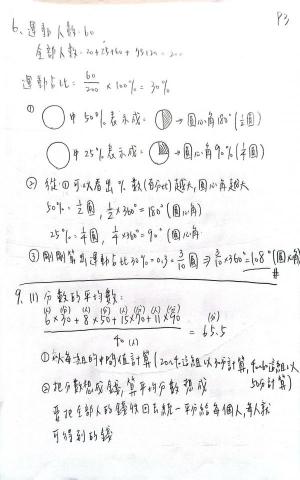 P3
6. 運動人數:60
全部人數:20+25+60+75+20=200
運動占比 = 60/200 × 100% = 30%
① ○中 50% 表示成: → 圓心角180°(1/2圓)
○中 25% 表示成: → 圓心角90%(1/4圓)
② 從①可以看出%數(百分比)越大,圓心角越大
50% = 1/2圓, 1/2×360°=180°(圓心角)
25% = 1/4圓, 1/4×360°=90°(圓心角)
③ 剛剛算出運動占比30%=0.3=3/10圓 ⇒ 3/10×360°=108°(圓心角)#
9. (1) 分數的平均數:
(人) (分) (人) (分) (人) (分) (人) (分)
6×30+8×50+15×70+11×90 / 40(人) = 65.5(分)
① 以每一組的中間值計算(20~40這組以30分計算, 40~60這組以50分計算)
② 把分數想成錢,算平均分數想成
要把全部人的錢收回去統一平分給每個人,每人就
可得到的錢